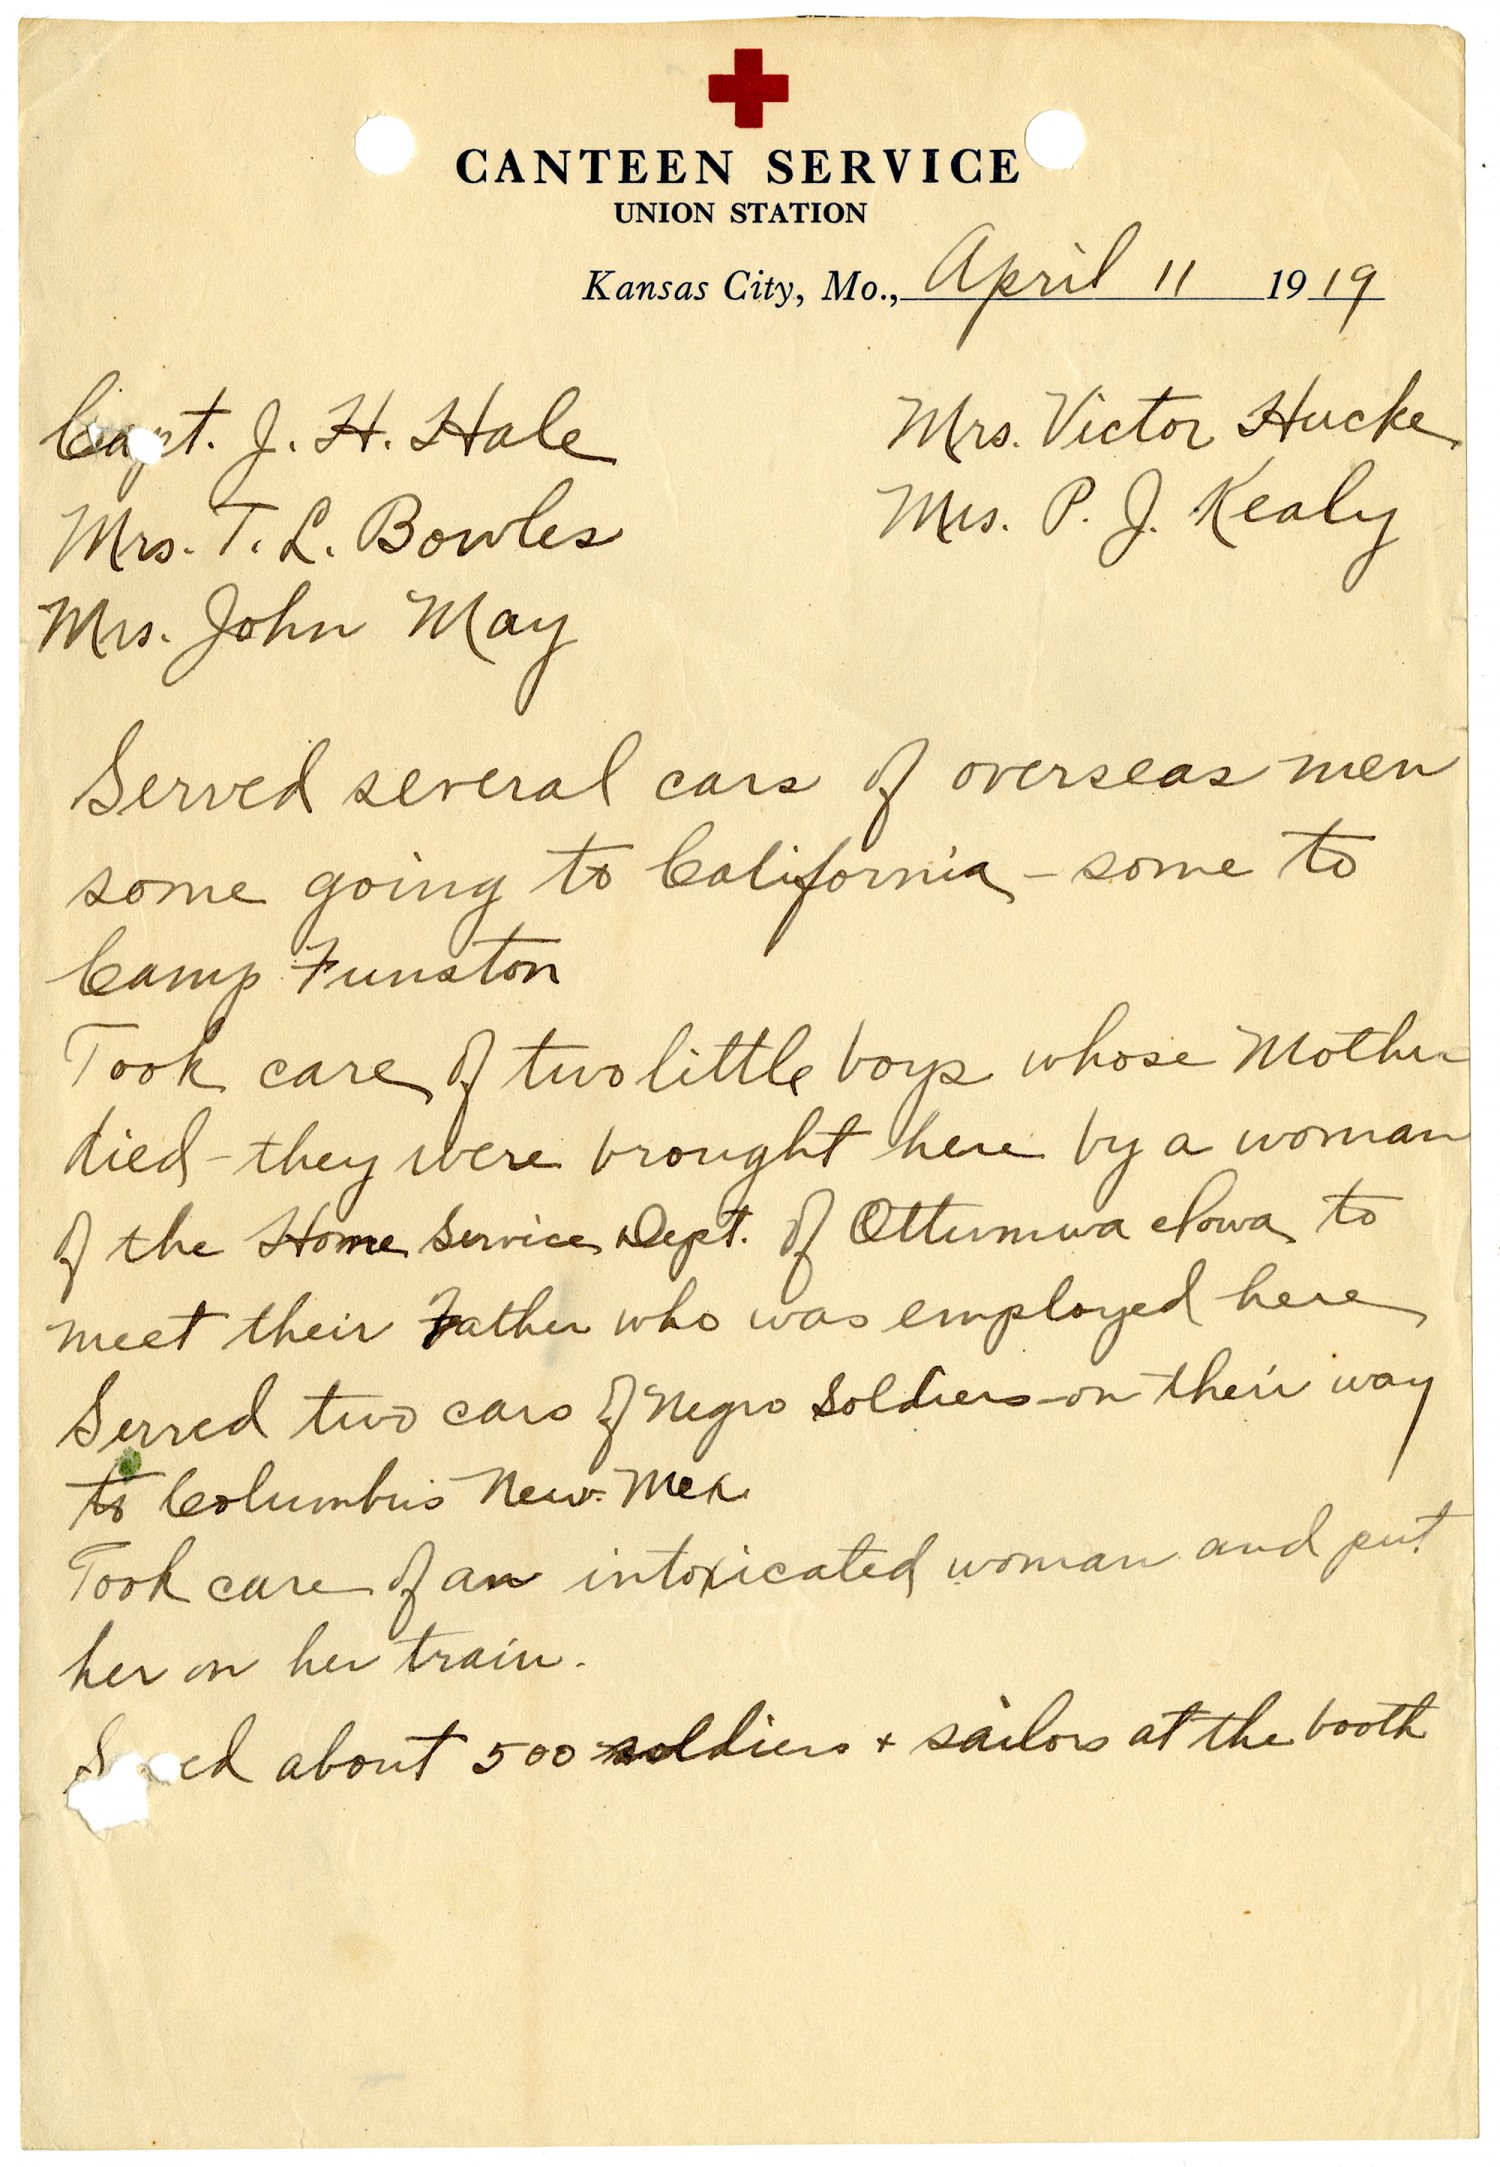 CANTEEN SERVICE
UNION STATION
Kansas City, Mo., April 11 1919
Capt. J. H. Hale
Mrs. Victor Hucke
Mrs. T. L. Bowles
Mrs. P. J. Kealy
Mrs. John May
Served several cars of overseas men
some going to California - some to
Camp Funston
Took care of two little boys whose Mother
died - they were brought here by a woman
of the Home Service Dept. of Ottumwa Iowa to
meet their Father who was employed here
Served two cars of Negro Soldiers - on their way
to Columbus New. Mex.
Took care of an intoxicated woman and put
her on her train.
S ed about 500 soldiers + sailors at the booth